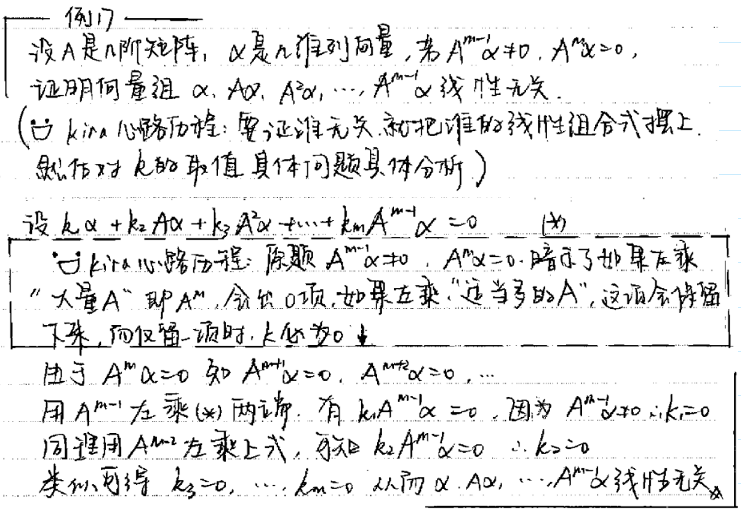 例17
设A是n阶矩阵，α是n维列向量，若 Aᵐ⁻¹α≠0，Aᵐα=0，
证明向量组 α，Aα，A²α，…，Aᵐ⁻¹α 线性无关．
( kira 心路历程：要证谁无关，就把谁的线性组合式摆上．
然后对k的取值具体问题具体分析)
设 k₁α + k₂Aα + k₃A²α + … + kₘAᵐ⁻¹α = 0 (*)
kira 心路历程：原题 Aᵐ⁻¹α≠0，Aᵐα=0．暗示了如果左乘
“大量A” 即Aᵐ，会出0项，如果左乘“适当多的A”，这项会保留
下来，而仅留一项时，k必为0↓
由于 Aᵐα=0 知 Aᵐ⁺¹α=0，Aᵐ⁺²α=0，…
用Aᵐ⁻¹ 左乘(*)两端，有 k₁Aᵐ⁻¹α=0，因为 Aᵐ⁻¹α≠0 ∴k₁=0
同理用Aᵐ⁻²左乘上式，可知 k₂Aᵐ⁻¹α=0 ∴k₂=0
类似可得 k₃=0，…，kₘ=0 从而 α，Aα，…，Aᵐ⁻¹α线性无关